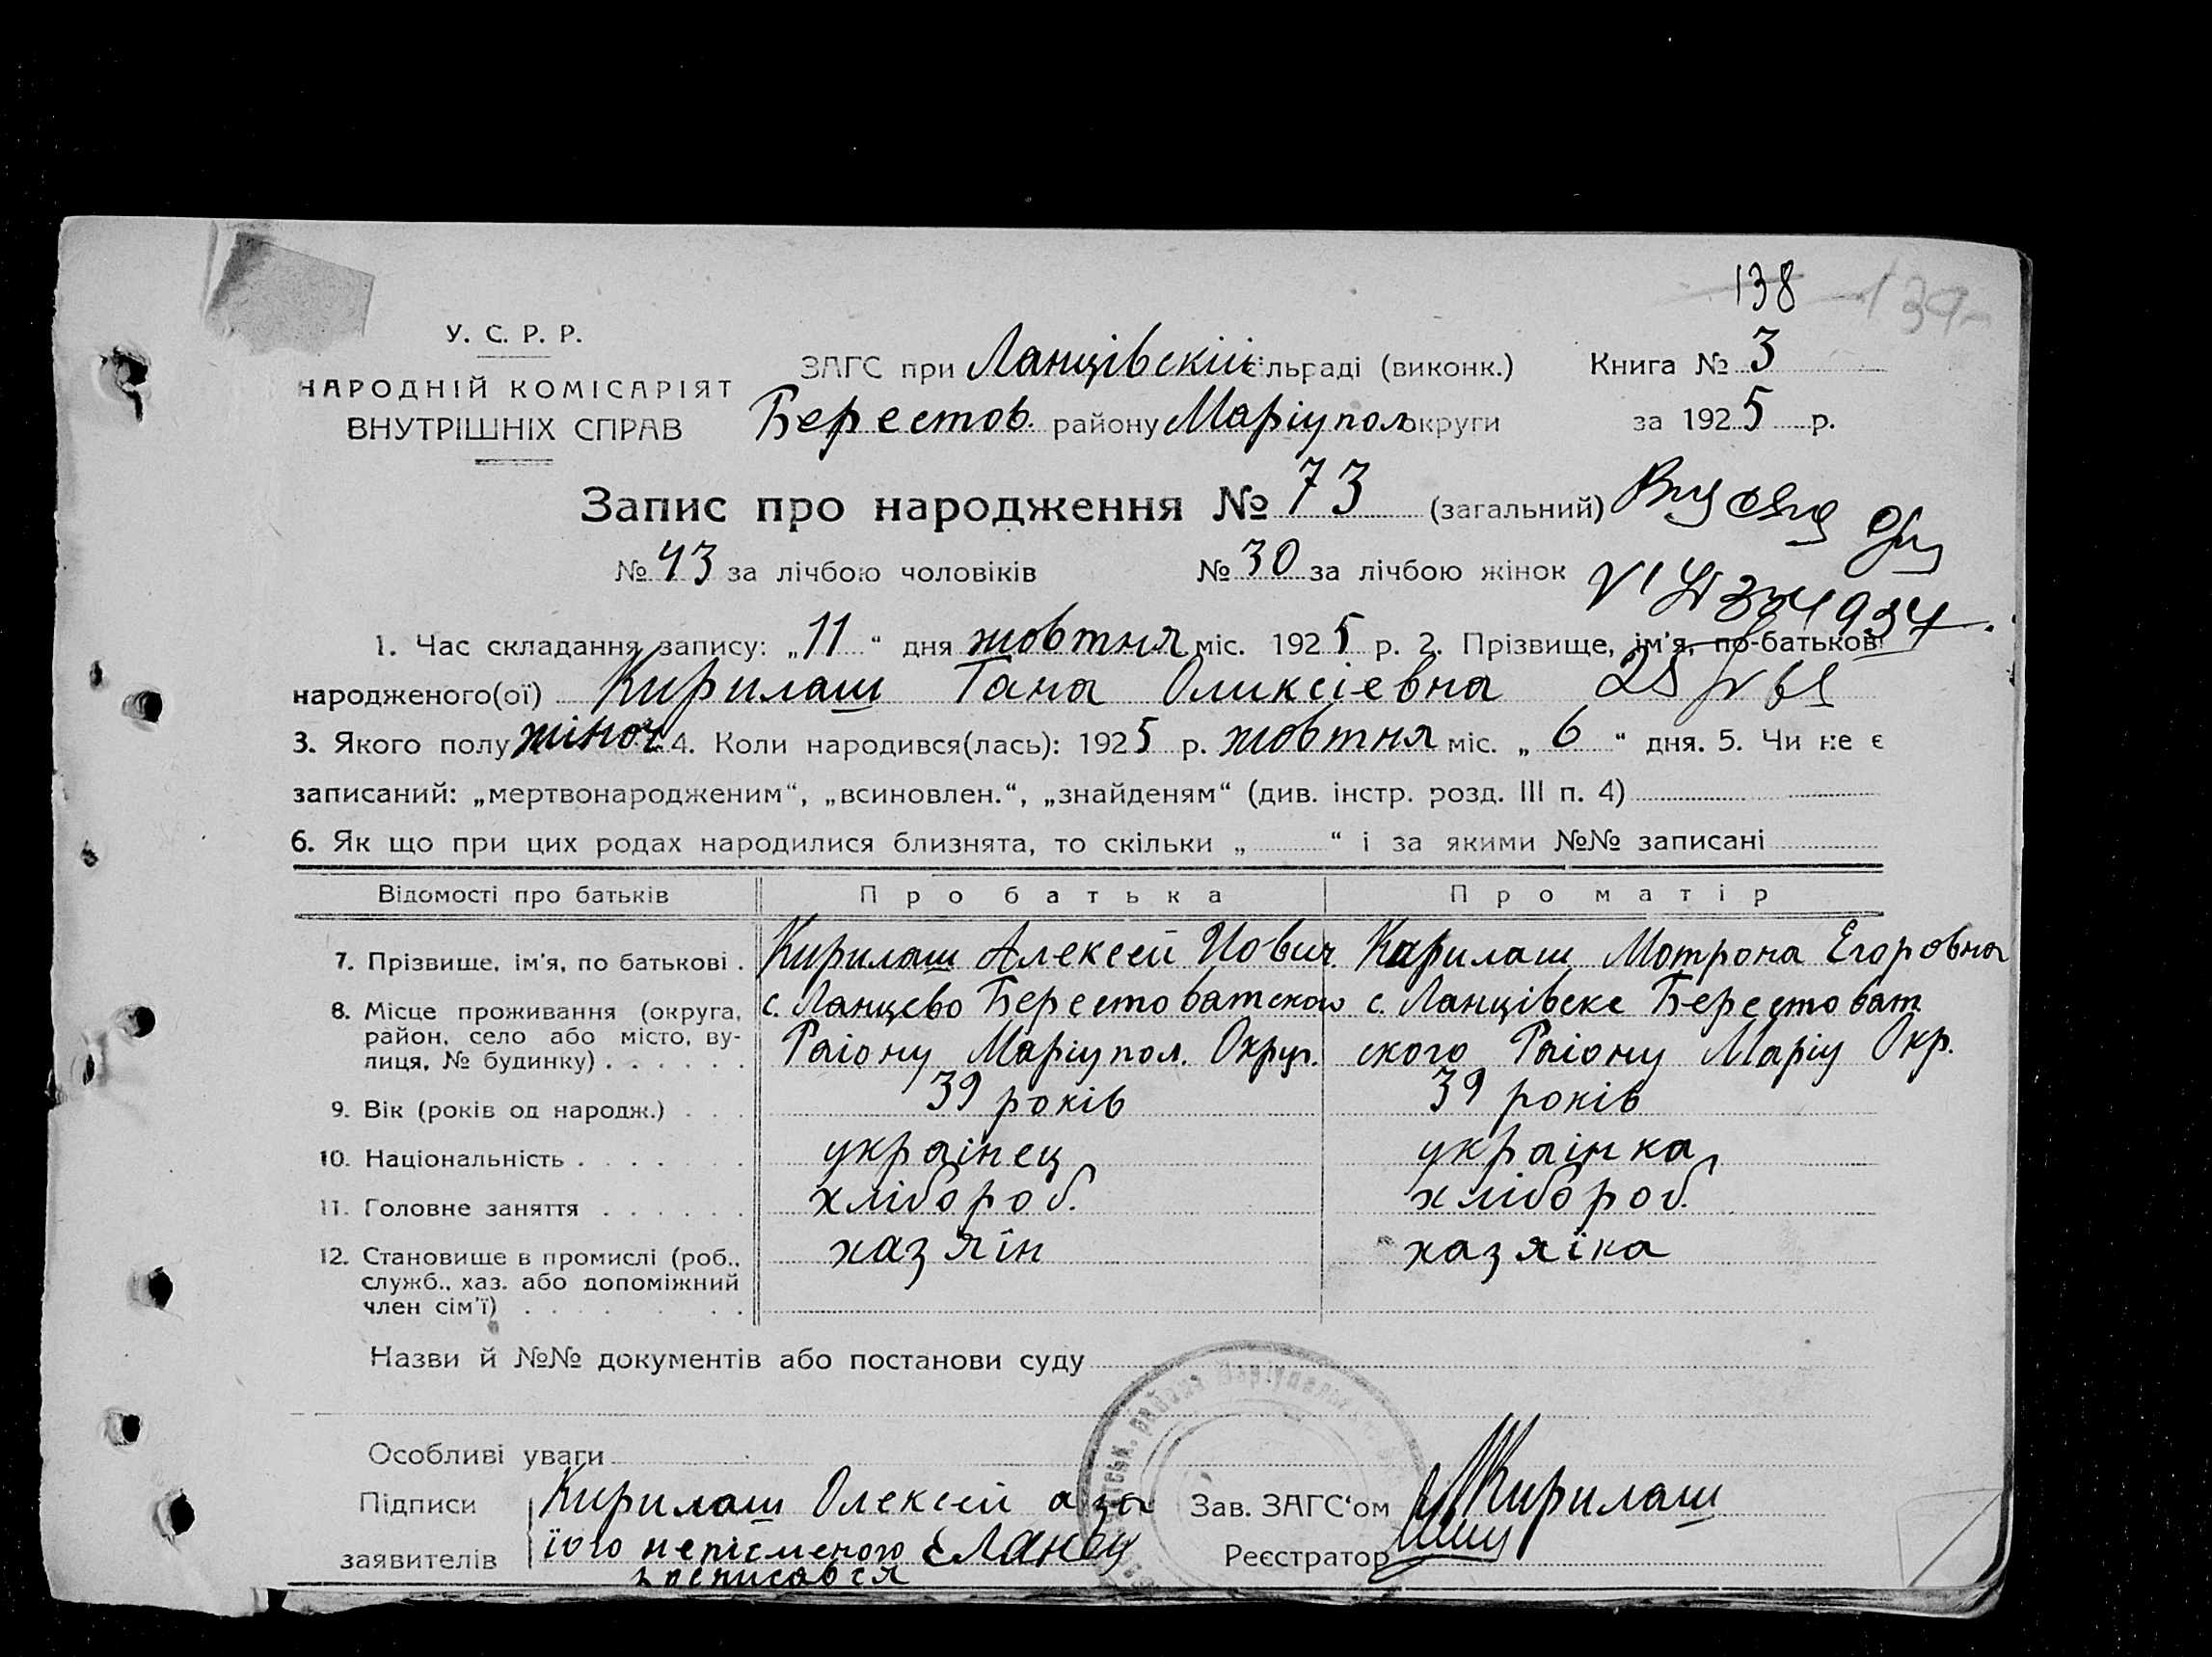 138 139
У. С. Р. Р.
НАРОДНІЙ КОМІСАРІЯТ
ВНУТРІШНІХ СПРАВ
ЗАГС при Ланцівскій сільраді (виконк.) Книга № 3
Берестов. району Маріупол округи за 1925 р.
Запис про народження № 73 (загальний)
№ 43 за лічбою чоловіків № 30 за лічбою жінок
1. Час складання запису: „11“ дня жовтня міс. 1925 р. 2. Прізвище, ім'я, по-батькові
народженого(ої) Кирилаш Гана Оликсіевна
3. Якого полу жіноч. 4. Коли народився(лась): 1925 р. жовтня міс. „6“ дня. 5. Чи не є
записаний: „мертвонародженим“, „всиновлен.“, „знайденям“ (див. інстр. розд. III п. 4)
6. Як що при цих родах народилися близнята, то скільки „ “ і за якими №№ записані
Відомості про батьків Про батька Про матір
7. Прізвище, ім'я, по батькові . Кирилаш Алексей Иович. Кирилаш Мотрона Егоровна
8. Місце проживання (округа, район, село або місто, вулиця, № будинку) . . . . . .
с. Ланцево Берестоватского с. Ланцівске Берестоват
Раіону Маріупол. Округ. ского Раіону Маріу Окр.
9. Вік (років од народж.) . . . 39 років 39 років
10. Національність . . . . . . . украінец украінка
11. Головне заняття . . . . . . хлібороб. хлібороб.
12. Становище в промислі (роб., служб., хаз. або допоміжний член сім'ї) . . . . . . .
хазяїн хазяїка
Назви й №№ документів або постанови суду
Особливі уваги
Підписи Кирилаш Олексей а за Зав. ЗАГС'ом Кирилаш
заявителів його непісменого Єланец Реєстратор